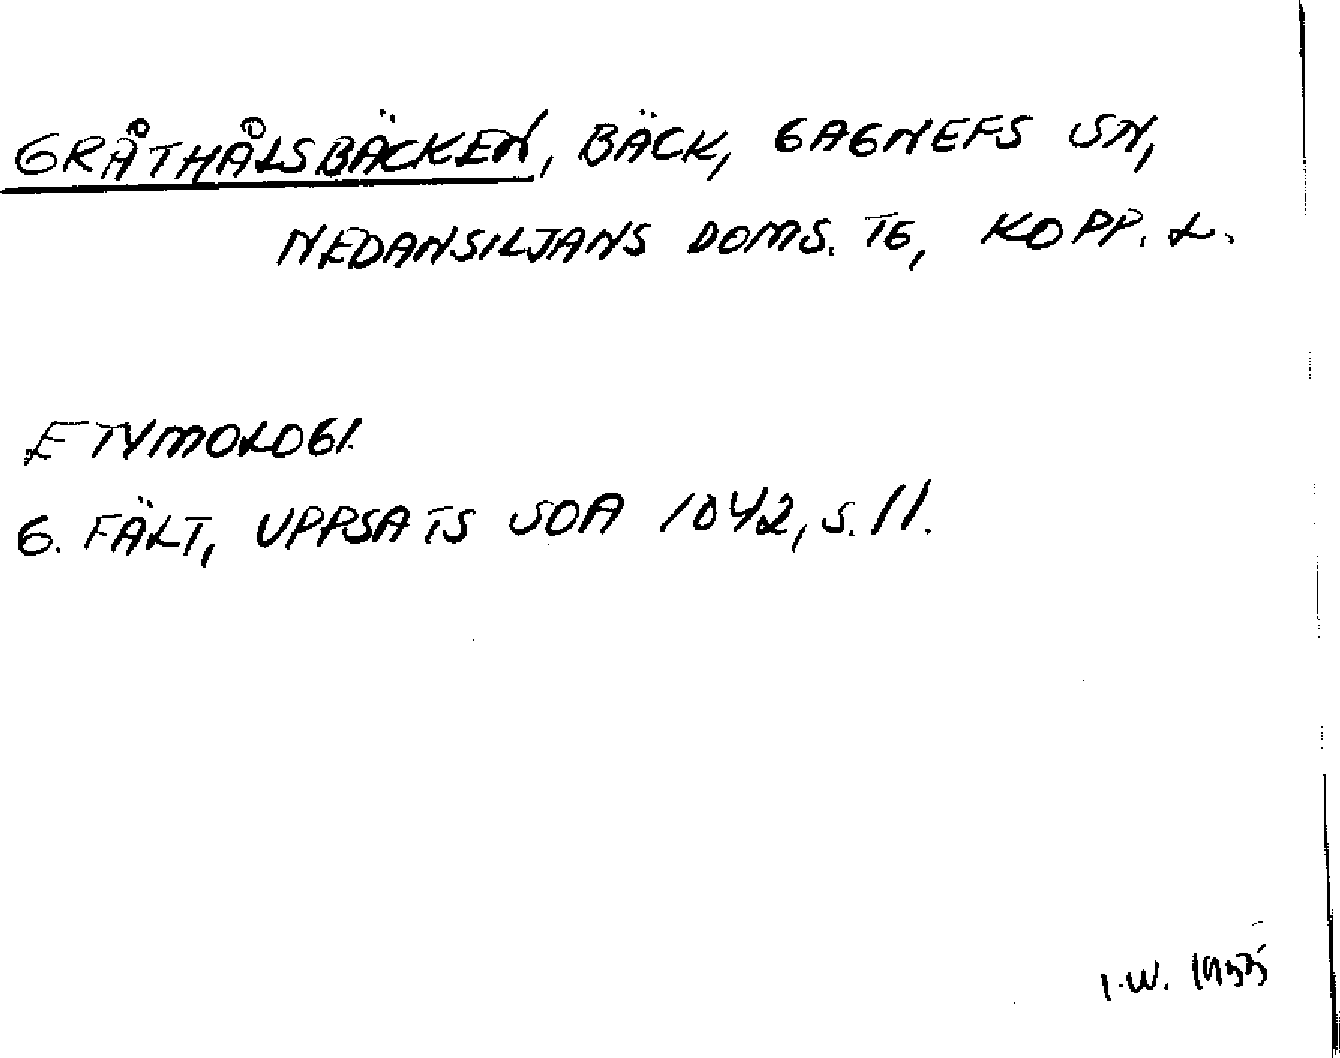 GRÅTHÅLSBÄCKEN, BÄCK, GAGNEFS SN,
NEDANSILJANS DOMS. TG, KOPP. L.
ETYMOLOGI.
G. FÄLT, UPPSATS SOA 1042, S. 11.
I.W. 1955